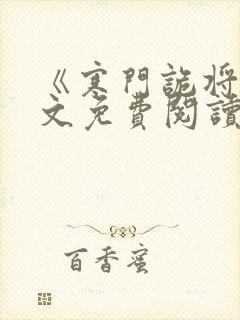 《寒門詭将
文免費閱讀
百香蜜